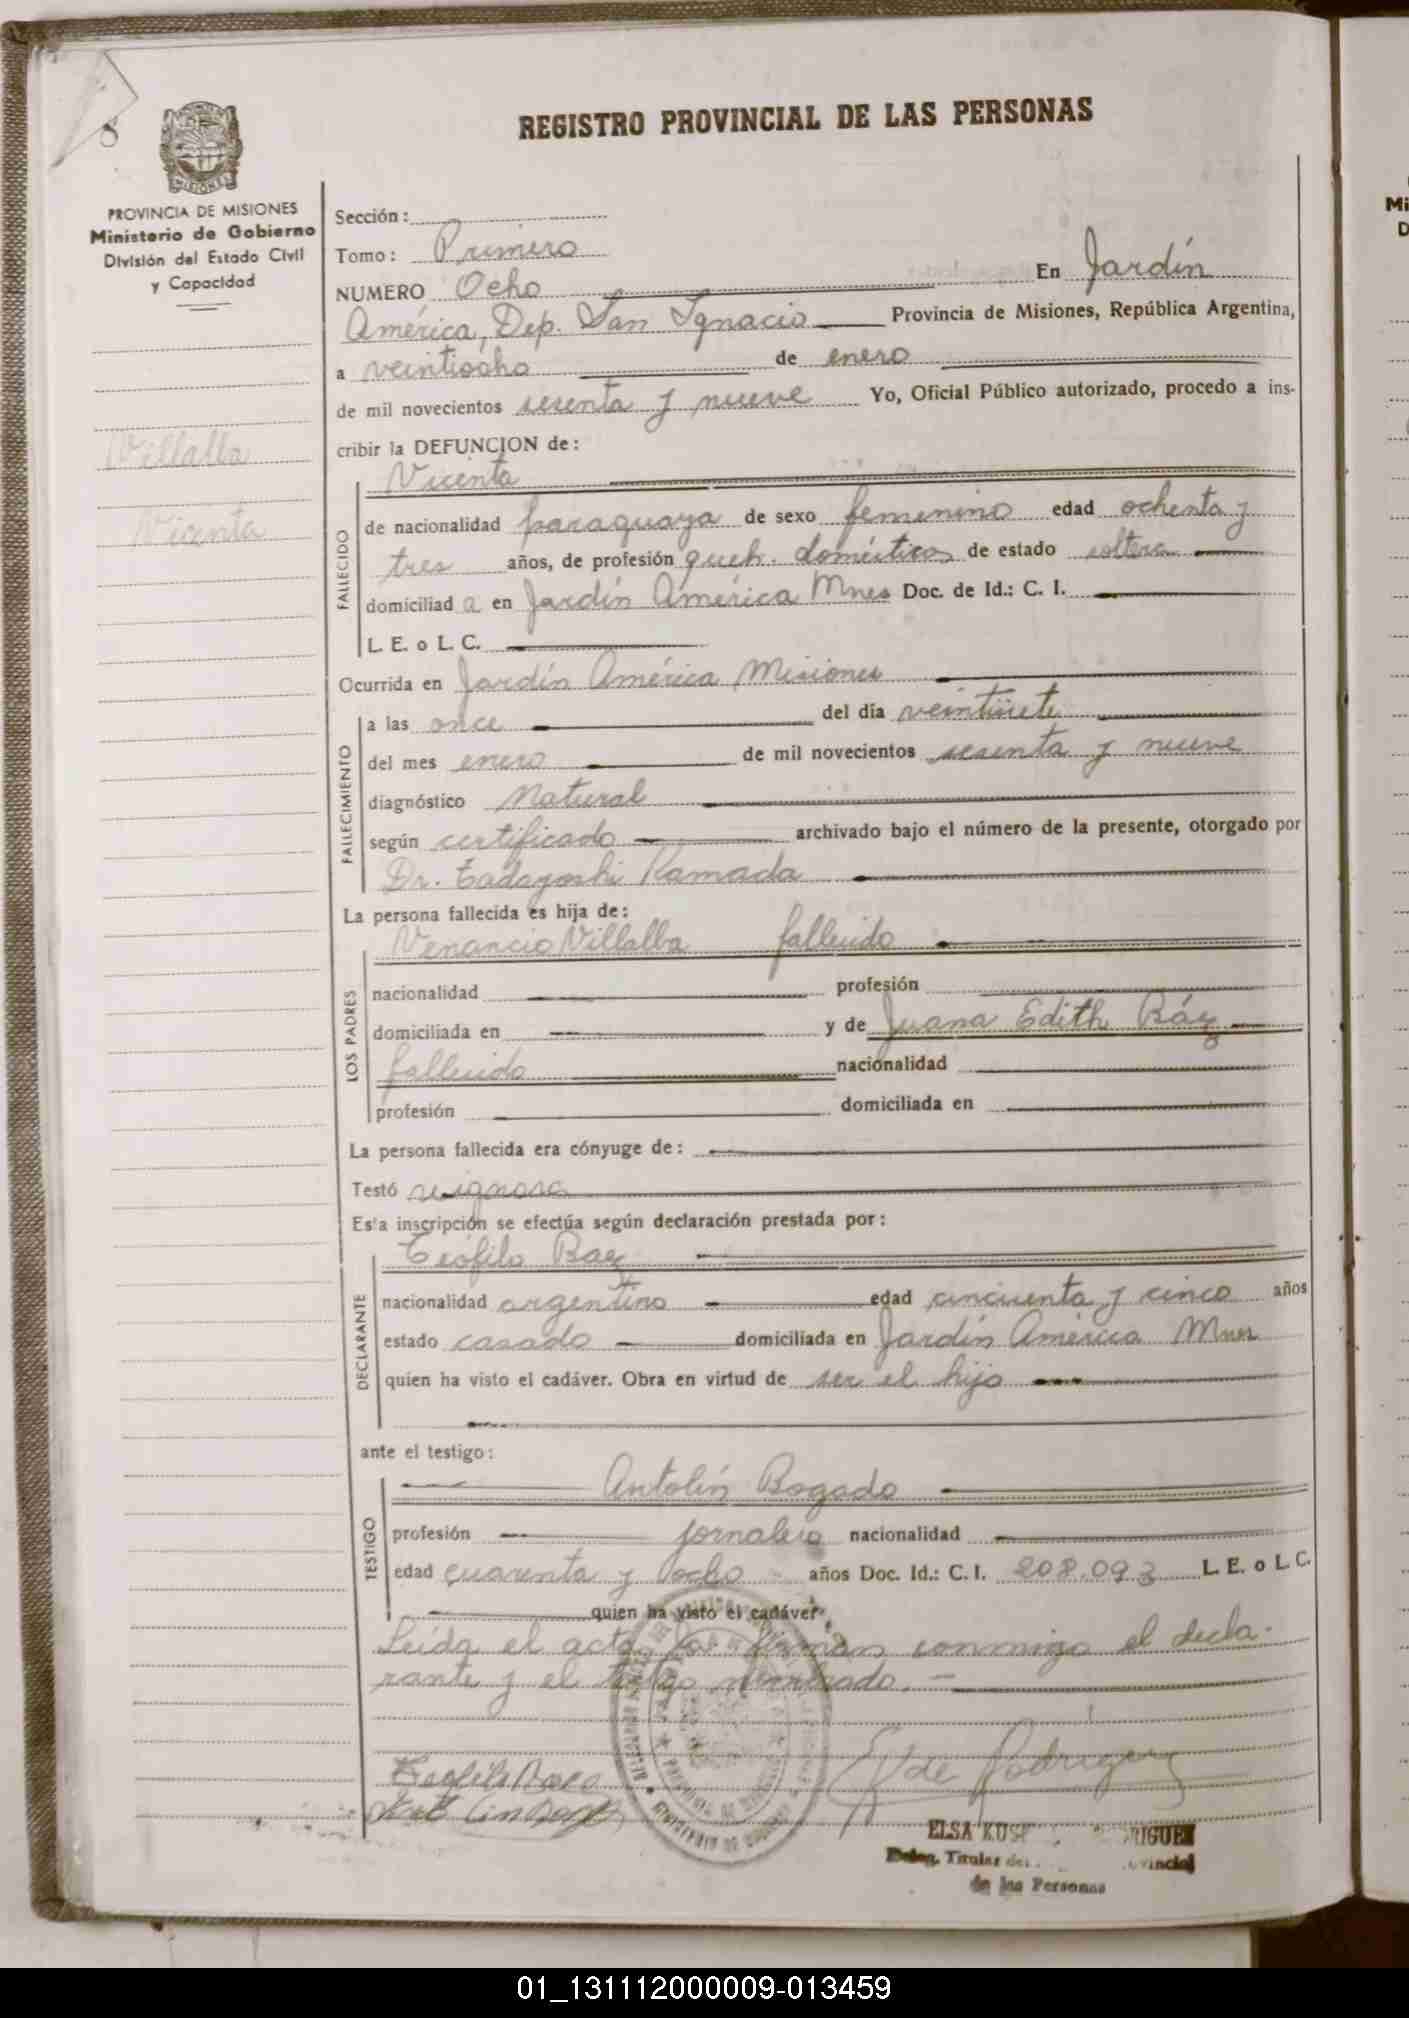 8
REGISTRO PROVINCIAL DE LAS PERSONAS
MISIONES
PROVINCIA DE MISIONES
Ministerio de Gobierno
División del Estado Civil
y Capacidad
Villalba
Vicenta
Sección:
Tomo: Primero
NUMERO Ocho En Jardín
América, Dep. San Ignacio Provincia de Misiones, República Argentina,
a veintiocho de enero
de mil novecientos sesenta y nueve Yo, Oficial Público autorizado, procedo a ins-
cribir la DEFUNCION de:
Vicenta
FALLECIDO
de nacionalidad paraguaya de sexo femenino edad ochenta y
tres años, de profesión queh. domésticos de estado soltera
domiciliad a en Jardín América Mnes Doc. de Id.: C. I.
L. E. o L. C.
Ocurrida en Jardín América Misiones
FALLECIMIENTO
a las once del día veintisiete
del mes enero de mil novecientos sesenta y nueve
diagnóstico Natural
según certificado archivado bajo el número de la presente, otorgado por
Dr. Tadayoshi Kamada
La persona fallecida es hija de:
LOS PADRES
Venancio Villalba fallecido
nacionalidad profesión
domiciliada en y de Juana Edith Báz
fallecido nacionalidad
profesión domiciliada en
La persona fallecida era cónyuge de:
Testó se ignora
Esta inscripción se efectúa según declaración prestada por:
DECLARANTE
Teófilo Baez
nacionalidad argentino edad cincuenta y cinco años
estado casado domiciliada en Jardín América Mnes
quien ha visto el cadáver. Obra en virtud de ser el hijo
ante el testigo:
TESTIGO
Antolín Bogado
profesión jornalero nacionalidad
edad cuarenta y ocho años Doc. Id.: C. I. 208.093 L. E. o L C.
quien ha visto el cadáver
Leída el acta la firman conmigo el decla-
rante y el testigo nombrado.
Elde Rodriguez
ELSA
Deleg. Titular del
de las Personas
01_131112000009-013459